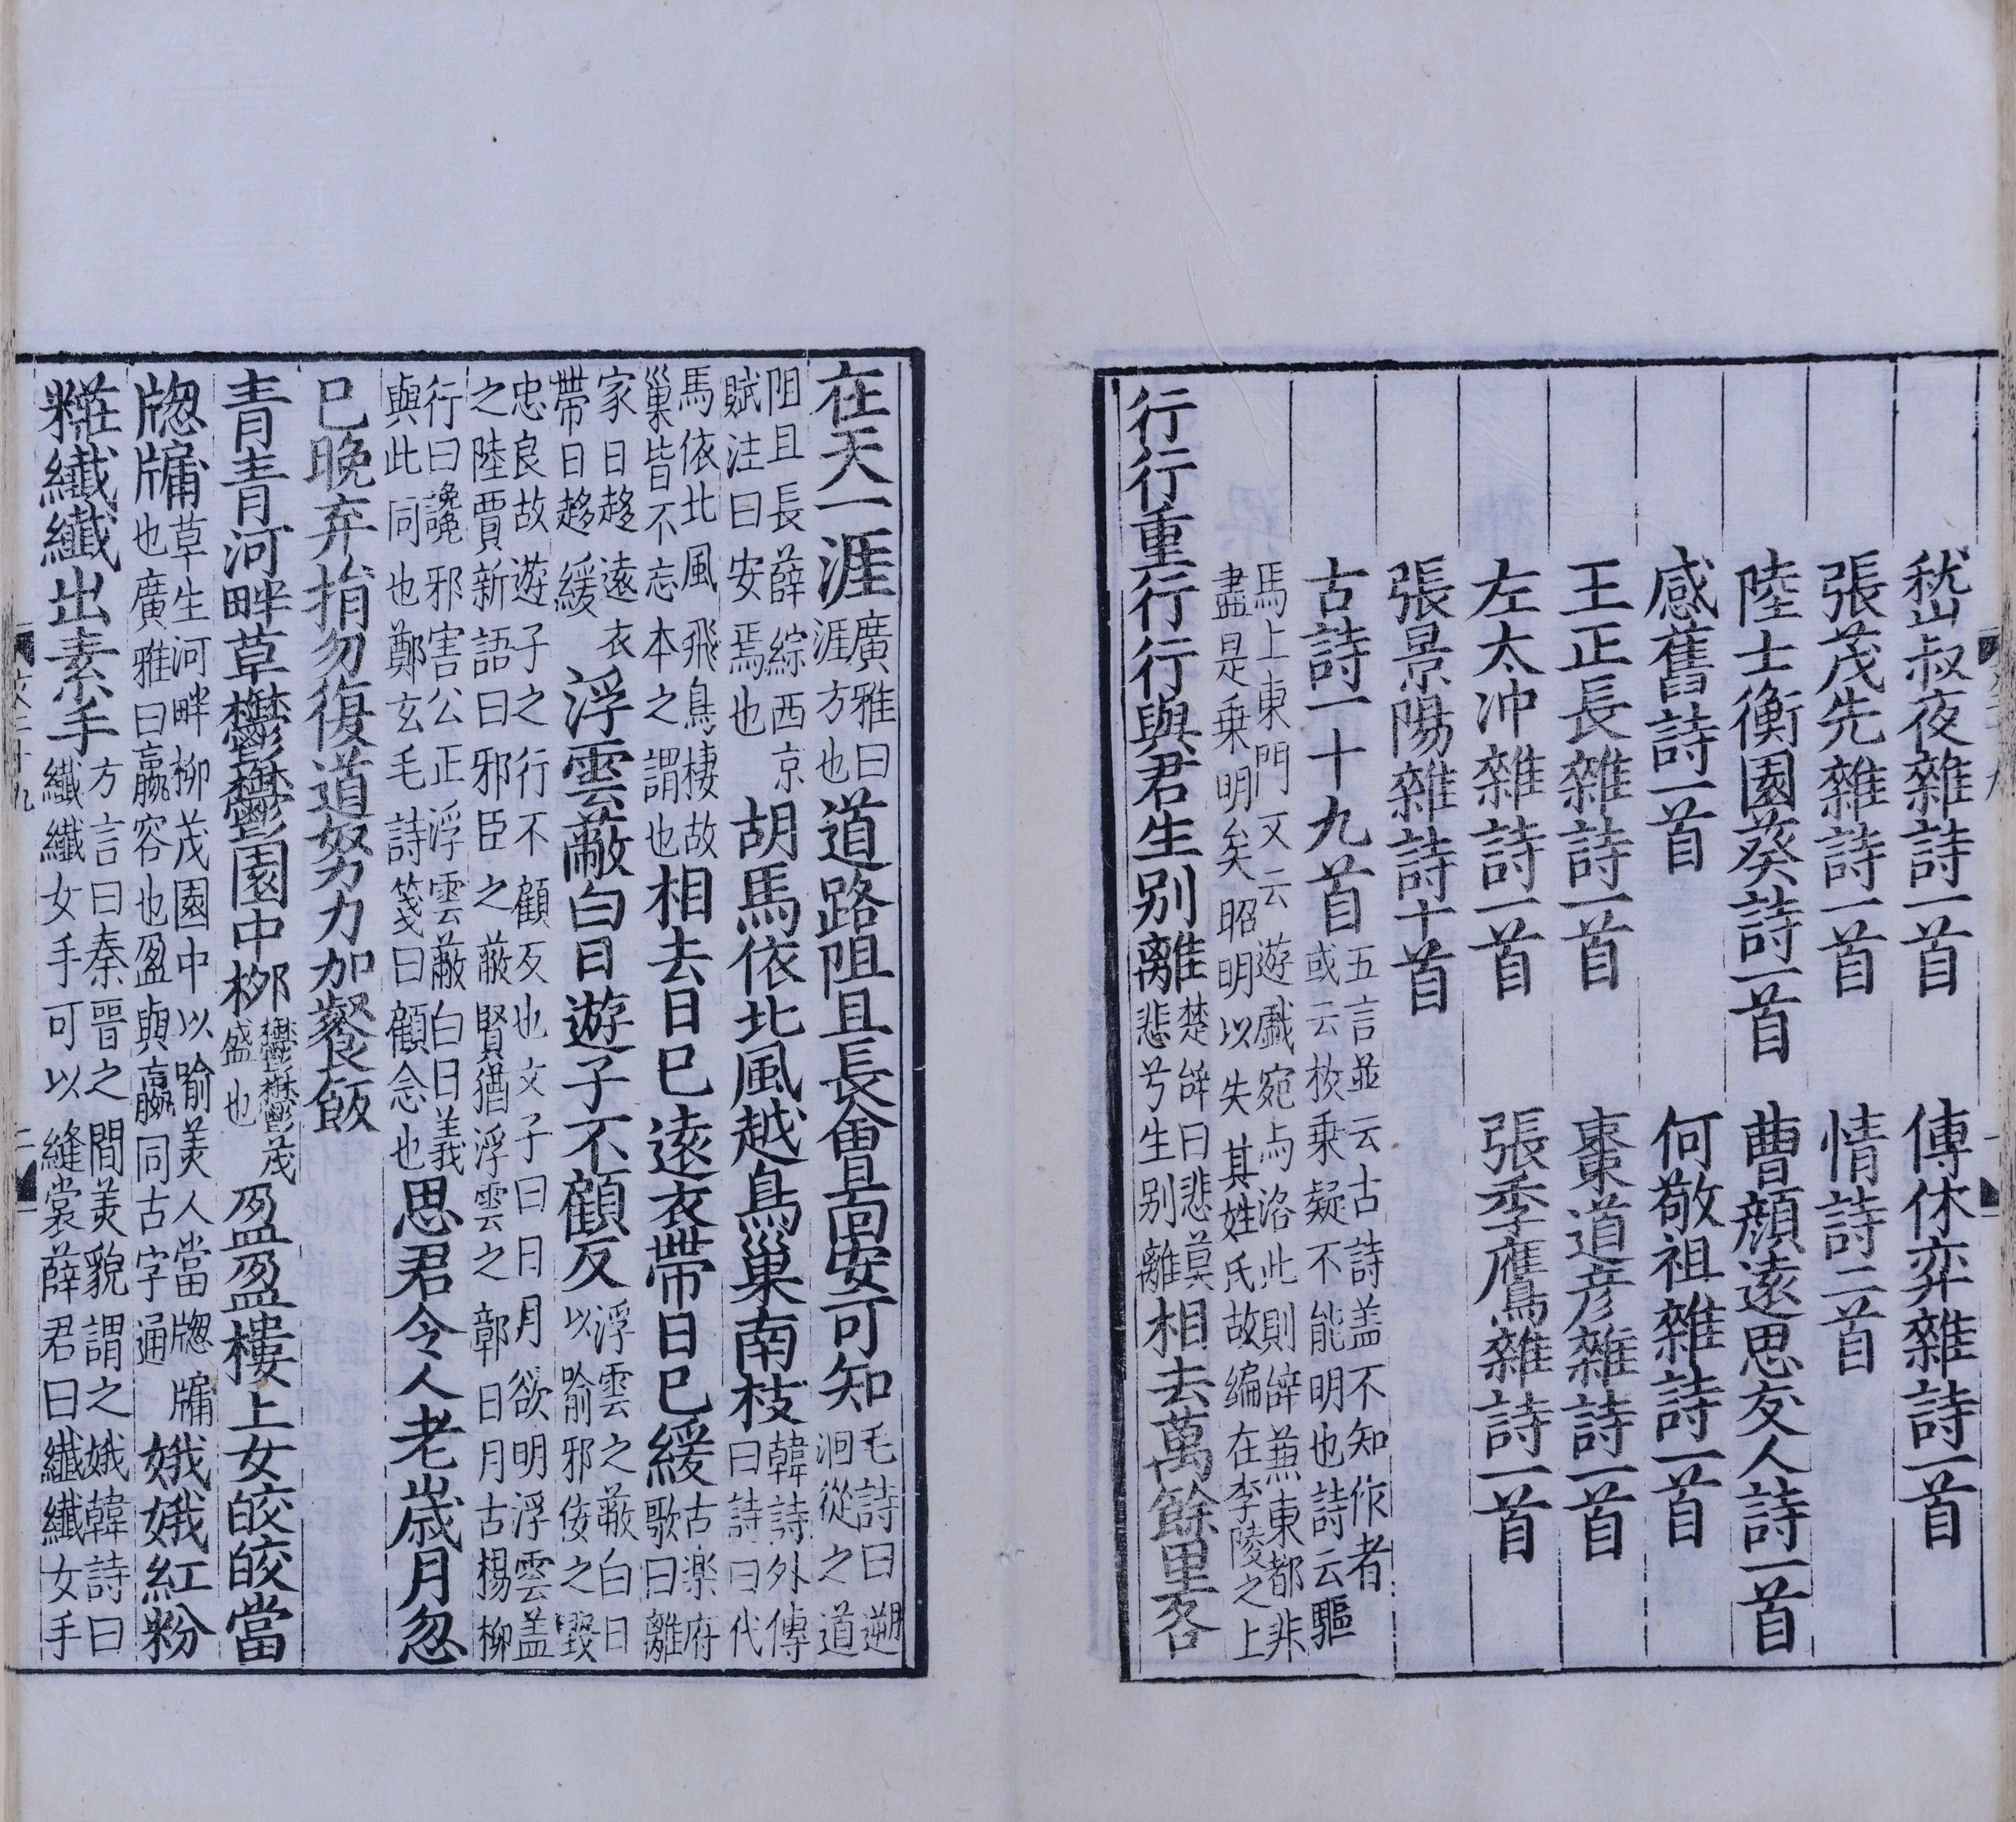 嵇叔夜雜詩一首　傅休弈雜詩一首
張茂先雜詩一首　情詩二首
陸士衡園葵詩一首　曹顏遠思友人詩一首
感舊詩一首　何敬祖雜詩一首
王正長雜詩一首　棗道彦雜詩一首
左太冲雜詩一首　張季鷹雜詩一首
張景陽雜詩十首
古詩一十九首
五言並云古詩盖不知作者
或云枚乗疑不能明也詩云驅
馬上東門又云遊戲宛与洛此則辭兼東都非
盡是乗明矣昭明以失其姓氏故编在李陵之上
行行重行行與君生别離
楚辭曰悲莫
悲兮生别離
相去萬餘里各
在天一涯
廣雅曰
涯方也
道路阻且長會面安可知
毛詩曰遡
洄從之道
阻且長薛綜西京
賦注曰安焉也
胡馬依北風越鳥巢南枝
韓詩外傳
曰詩曰代
馬依北風飛鳥棲故
巢皆不忘本之謂也
相去日已遠衣帶日已緩
古楽府
歌曰離
家日趍遠衣
帶日趍緩
浮雲蔽白日遊子不顧反
浮雲之蔽白日
以喻邪佞之毀
忠良故遊子之行不顧反也文子曰日月欲明浮雲盖
之陸賈新語曰邪臣之蔽賢猶浮雲之鄣日月古楊柳
行曰讒邪害公正浮雲蔽白日義
與此同也鄭玄毛詩箋曰顧念也
思君令人老歳月忽
已晚弃捐勿復道努力加餐飯
青青河畔草鬱鬱園中栁
鬱鬱茂
盛也
盈盈樓上女皎皎當
牎牗
草生河畔柳茂園中以喻美人當牎牗
也廣雅曰嬴容也盈與嬴同古字通
娥娥紅粉
糚纎纎出素手
方言曰秦晉之間美貌謂之娥韓詩曰
纎纎女手可以縫裳薛君曰纎纎女手
文二十九
二